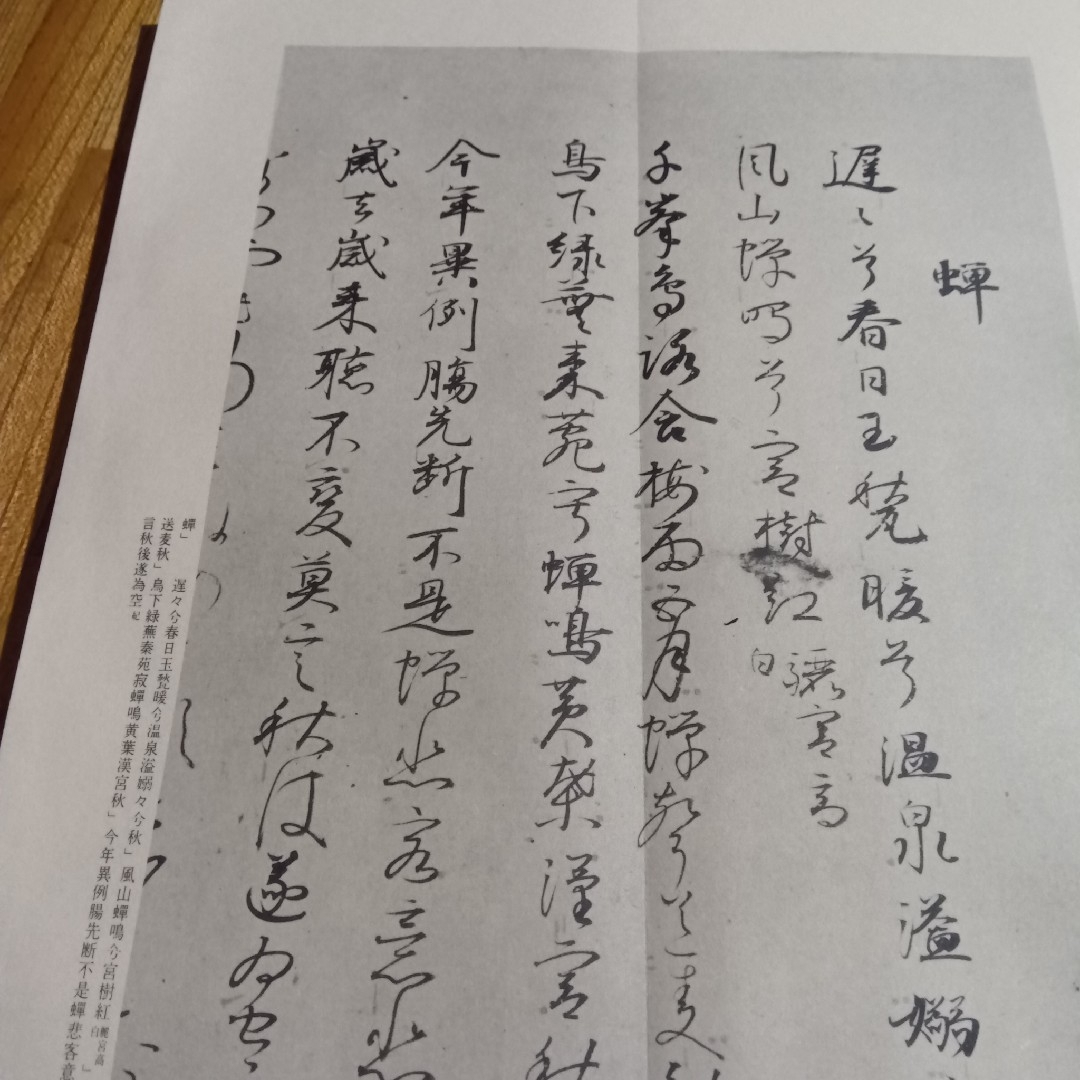 蝉
遅々兮春日玉甃暖兮温泉溢嫋
風山蝉鳴兮宮樹紅 驪宮高
白
千峯鳥路含梅雨五月蝉聲送麦
鳥下緑蕪秦苑寂蝉鳴黄葉漢宮秋
今年異例腸先断不是蝉悲客意悲
歳去歳来聴不変莫言秋後遂為空
蟬」 遅々兮春日玉甃暖兮温泉溢嫋々兮秋」風山蟬鳴兮宮樹紅 驪宮高 白
送麦秋」鳥下緑蕪秦苑寂蟬鳴黄葉漢宮秋」今年異例腸先断不是蟬悲客意
言秋後遂為空 紀